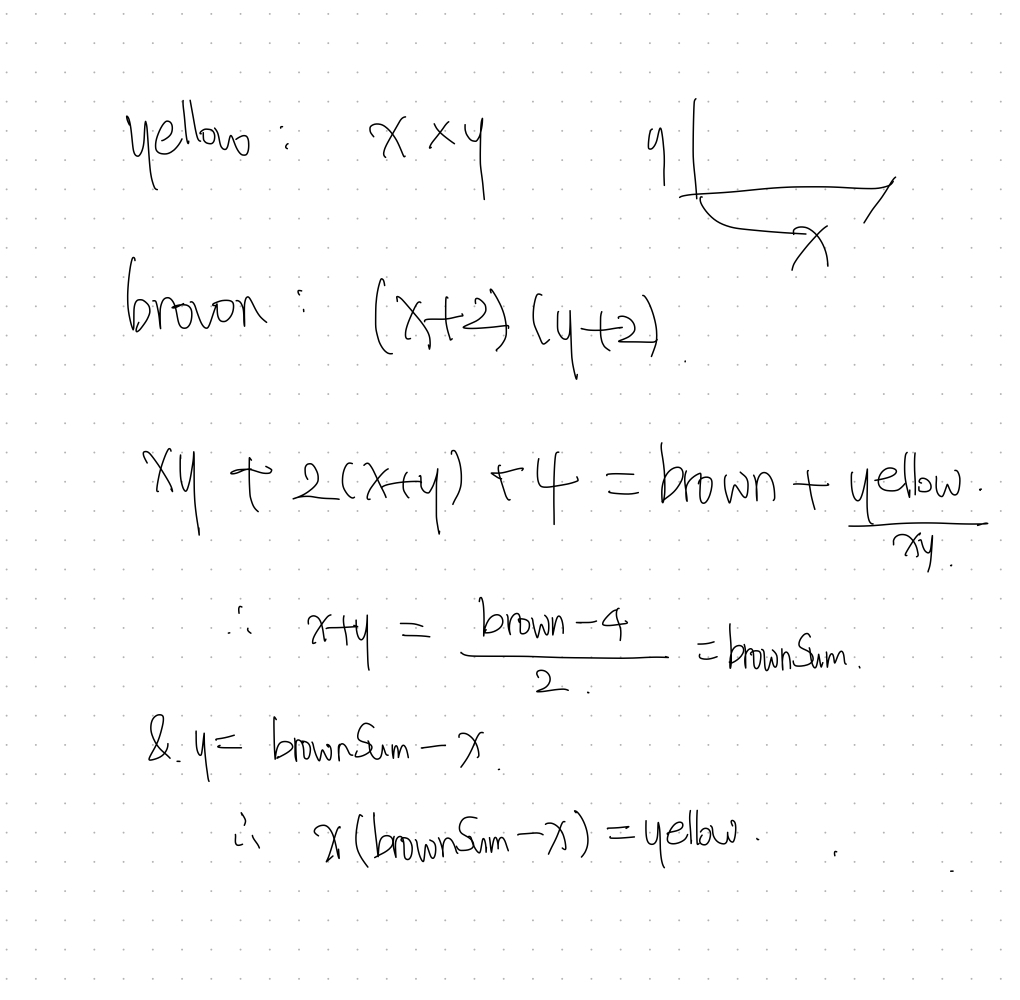 yellow : x × y
y
x
brown : (x+2) (y+2)
xy + 2(x+y) + 4 = brown + yellow.
xy.
∴ x+y = brown-4 / 2. = brownSum.
&. y = brownSum - x.
∴ x(brownSum-x) = yellow.